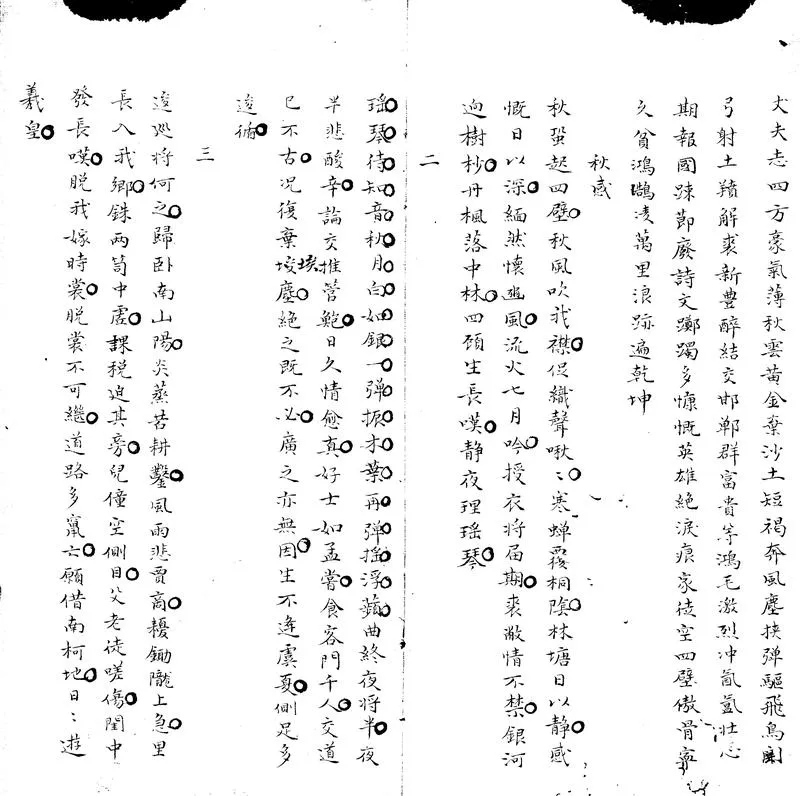 丈夫志四方豪氣薄秋雲黃金棄沙土短褐奔風塵挾彈驅飛鳥劘
弓射土獖解裘新豊醉結交邯鄲群富貴等鴻毛激烈冲氤氳壮心
期報國踈節廢詩文躑躅多慷慨英雄絕淚痕家徒空四壁傲骨寧
久貧鴻鵠凌萬里浪跡遍乾坤
秋感
秋蛩起四壁秋風吹我襟促織聲啾〻寒蝉覆桐陰林塘日以静感
慨日以深緬然懷豳風流火七月吟授衣将届期裘敝情不禁銀河
逈樹杪丹楓落中林四顧生長嘆静夜理瑶琴
二
瑶琴待知音秋月白如銀一弹振木葉再弹摇浮蘋曲終夜将半夜
半悲酸辛論交推管鲍日久情愈真好士如孟嘗食客門千人交道
已不古况復棄埃塵絕之既不必廣之亦無因生不逢虞夏側足多
逡循
三
逡巡将何之歸卧南山陽炎蒸苦耕鑿風雨悲賈商耰鋤隴上急里
長入我鄉銖兩笥中虚課税迫其旁兒僮空側目父老徒嗟傷閨中
發長嘆脱我嫁時裳脱裳不可繼道路多竄亡願借南柯地日〻遊
羲皇